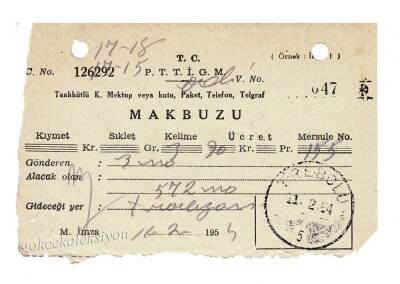 17-18
T. C. ( Örnek :
C. No. 126292 17-15 P. T. T. İ. G. M. V. No. 047
Taahhütlü K. Mektup veya kutu, Paket, Telefon, Telgraf
MAKBUZU
Kıymet Sıklet Kelime Ücret Mersule No.
Kr. Gr. 3 90 Kr. Pr. 115
Gönderen : 3 no
Alacak olan :
572 no
Gideceği yer : Trabzon
M. İmza 11-2- 195 4
11.2.54
5
gokcekoleksiyon